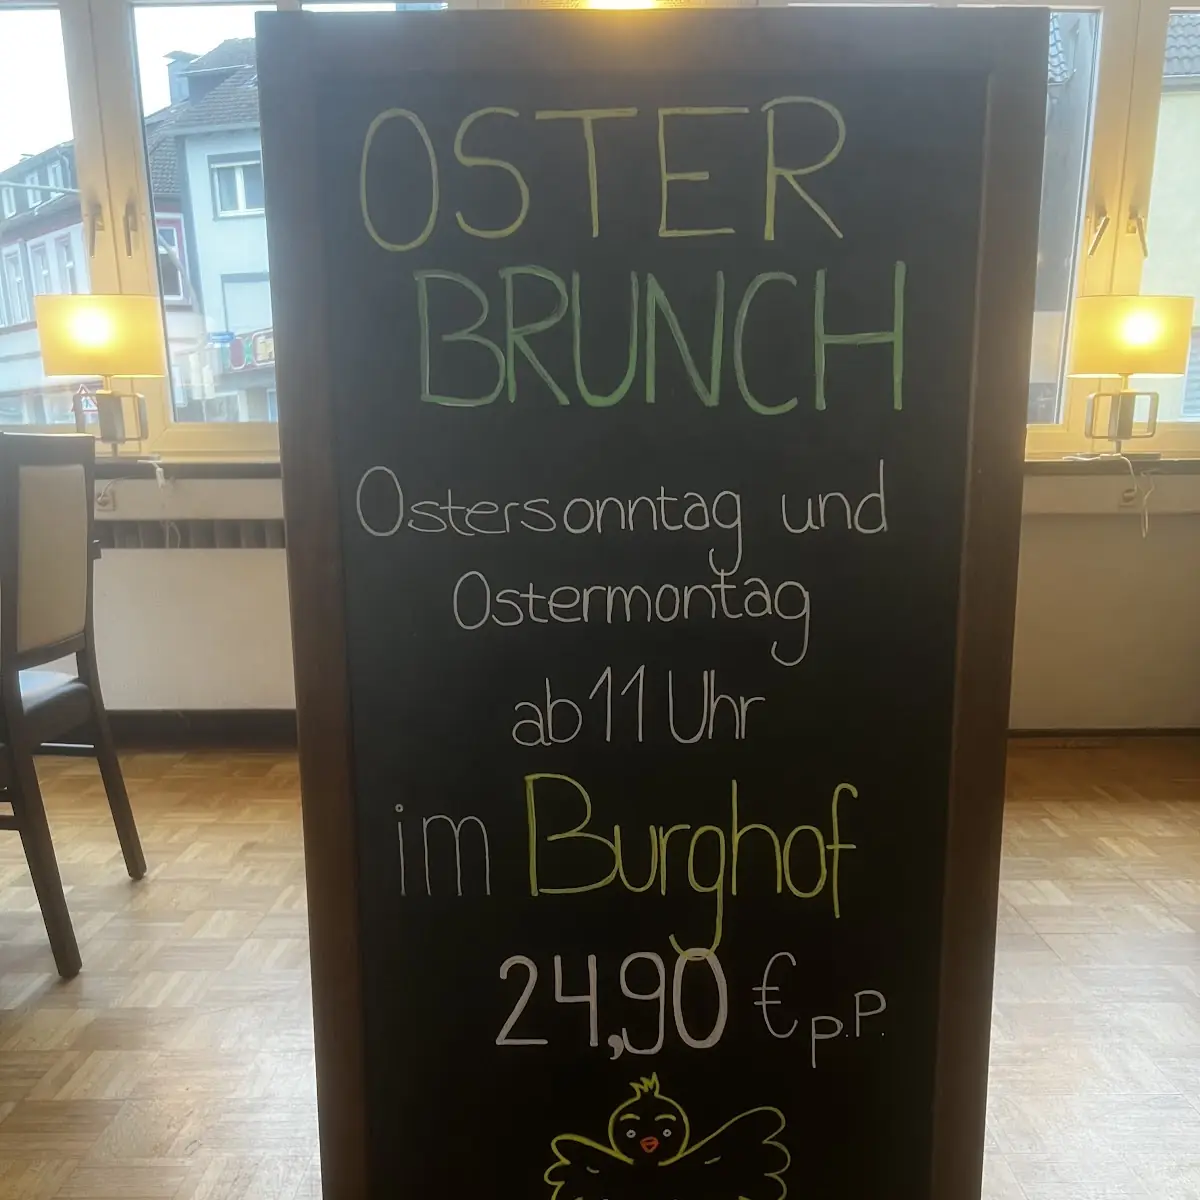 OSTER
BRUNCH
Ostersonntag und
Ostermontag
ab 11 Uhr
im Burghof
24,90 € p.P.